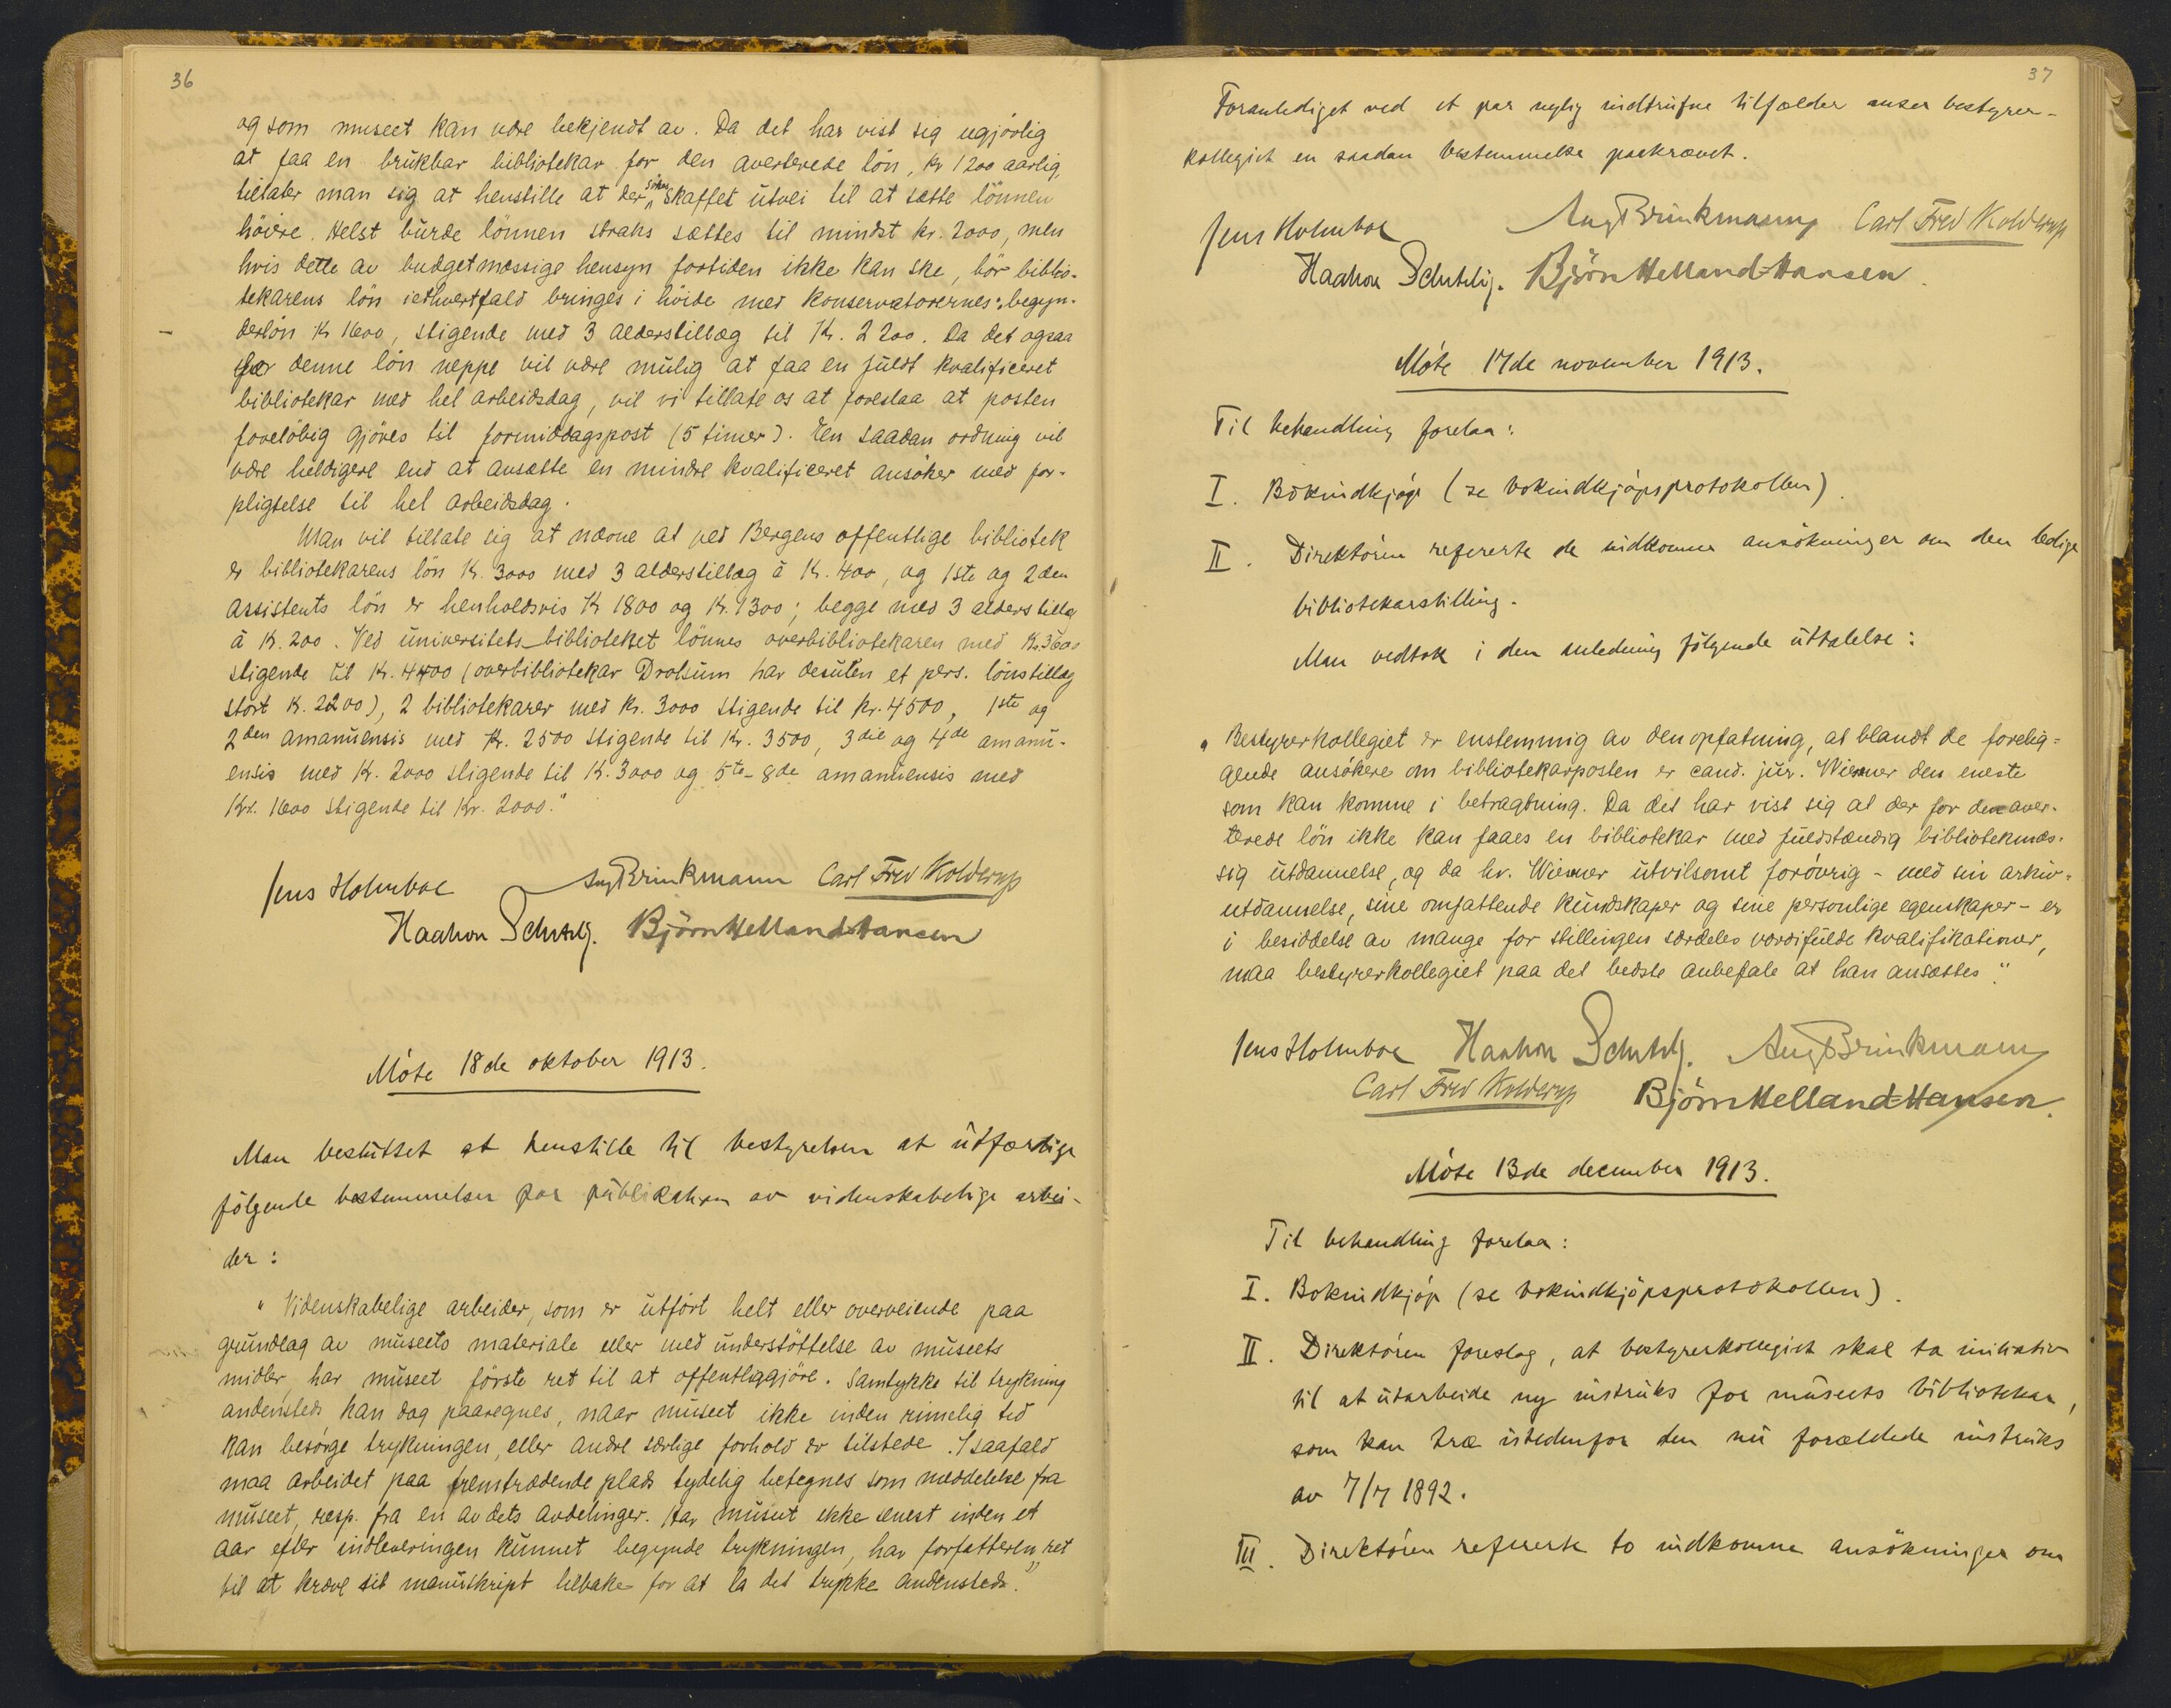 36
og som museet kan være bekjendt av. Da det har vist sig ugjörlig
at faa en brukbar bibliotekar for den averterede lön, kr 1200 aarlig,
tillater man sig at henstille at der søkes skaffet utvei til at sætte lönnen
höiere. Helst burde lönnen straks sættes til mindst kr. 2000, men
hvis dette av budgetmæssige hensyn fortiden ikke kan ske, bör biblio-
tekarens lön iethvertfald bringes i höide med konservatorernes: begyn-
derlön kr 1600, stigende med 3 alderstillæg til Kr. 2200. Da det ogsaa
for denne lön neppe vil være mulig at faa en fuldt kvalificeret
bibliotekar med hel arbeidsdag, vil vi tillate os at foreslaa at posten
forelöbig gjöres til formiddagspost (5 timer). En saadan ordning vil
være heldigere end at ansætte en mindre kvalificeret ansöker med for-
pligtelse til hel arbeidsdag.
Man vil tillate sig at nævne at ved Bergens offentlige bibliotek
er bibliotekarens lön Kr. 3000 med 3 alderstillæg à Kr. 400, og 1ste og 2den
assistents lön er henholdsvis Kr 1800 og Kr. 1300; begge med 3 alderstillæg
à Kr. 200. Ved universitets-biblioteket lönnes overbibliotekaren med Kr. 3600
stigende til Kr. 4400 (overbibliotekar Drolsum har desuten et pers. lönstillæg
stort Kr. 2200), 2 bibliotekarer med Kr. 3000 stigende til Kr. 4500, 1ste og
2den amanuensis med Kr. 2500 stigende til Kr. 3500, 3die og 4de amanu-
ensis med Kr. 2000 stigende til Kr. 3000 og 5te-8de amanuensis med
Kr. 1600 stigende til Kr. 2000."
Jens Holmboe Aug Brinkmann Carl Fred Kolderup
Haakon Schetelig. Björn Helland-Hansen
Möte 18de oktober 1913.
Man besluttet at henstille til bestyrelsen at utfærdige
fölgende bestemmelser for publikation av videnskabelige arbei-
der:
"Videnskabelige arbeider, som er utfört helt eller overveiende paa
grundlag av museets materiale eller med understöttelse av museets
midler, har museet förste ret til at offentliggjöre. Samtykke til trykning
andensteds kan dog paaregnes, naar museet ikke inden rimelig tid
kan besörge trykningen, eller andre særlige forhold er tilstede. I saafald
maa arbeidet paa fremtrædende plads tydelig betegnes som meddelelse fra
museet, resp. fra en av dets avdelinger. Har museet ikke senest inden et
aar efter indleveringen kunnet begynde trykningen, har forfatteren ret
til at kræve sit manuskript tilbake for at la det trykke andensteds."
37
Foranlediget ved et par nylig indtrufne tilfælder anser bestyrer-
kollegiet en saadan bestemmelse paakrævet.
Jens Holmboe Aug Brinkmann Carl Fred Kolderup
Haakon Schetelig. Björn Helland-Hansen.
Möte 17de november 1913.
Til behandling forelaa:
I. Bokindkjöp (se bokindkjöpsprotokollen).
II. Direktören refererte de indkomne ansökninger om den ledige
bibliotekarstilling.
Man vedtok i den anledning fölgende uttalelse:
"Bestyrerkollegiet er enstemmig av den opfatning, at blandt de forelig-
gende ansökere om bibliotekarposten er cand. jur. Wiesener den eneste
som kan komme i betragtning. Da det har vist sig at der for den aver-
terede lön ikke kan faaes en bibliotekar med fuldstændig bibliotekmæs-
sig utdannelse, og da hr. Wiesener utvilsomt forövrig - med sin arkiv-
utdannelse, sine omfattende kundskaper og sine personlige egenskaper - er
i besiddelse av mange for stillingen særdeles værdifulde kvalifikationer,
maa bestyrerkollegiet paa det bedste anbefale at han ansættes."
Jens Holmboe Haakon Schetelig. Aug Brinkmann
Carl Fred Kolderup Björn Helland-Hansen.
Möte 13de december 1913.
Til behandling forelaa:
I. Bokindkjöp (se bokindkjöpsprotokollen).
II. Direktören foreslog, at bestyrerkollegiet skal ta initiativ
til at utarbeide ny instruks for museets bibliotekar,
som kan træ istedenfor den nu forældede instruks
av 7/7 1892.
III. Direktören refererte to indkomne ansökninger om